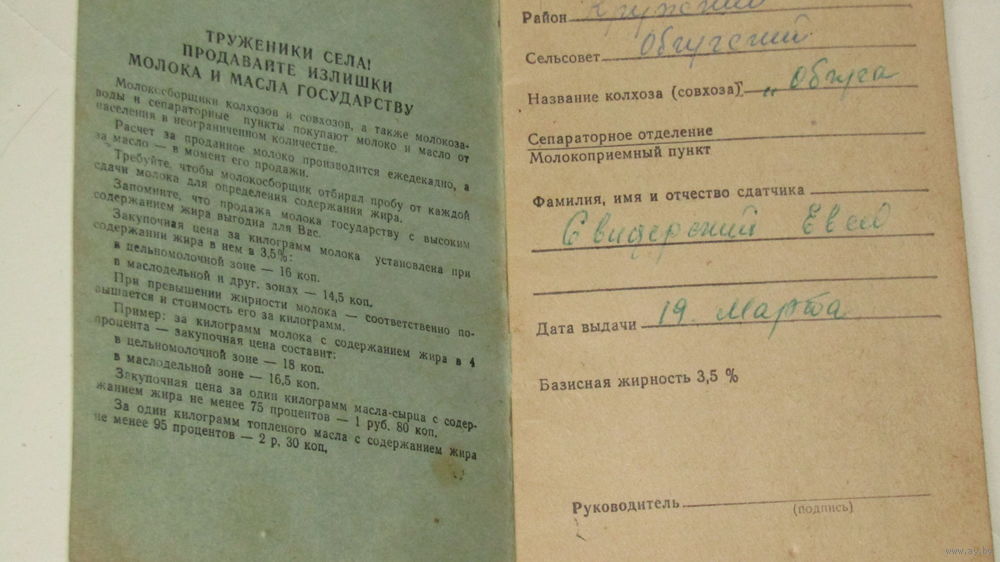 ТРУЖЕНИКИ СЕЛА!
ПРОДАВАЙТЕ ИЗЛИШКИ
МОЛОКА И МАСЛА ГОСУДАРСТВУ
Молокосборщики колхозов и совхозов, а также молокоза-
воды и сепараторные пункты покупают молоко и масло от
населения в неограниченном количестве.
Расчет за проданное молоко производится ежедекадно, а
за масло — в момент его продажи.
Требуйте, чтобы молокосборщик отбирал пробу от каждой
сдачи молока для определения содержания жира.
Запомните, что продажа молока государству с высоким
содержанием жира выгодна для Вас.
Закупочная цена за килограмм молока установлена при
содержании жира в нем в 3,5%:
в цельномолочной зоне — 16 коп.
в маслодельной и друг. зонах — 14,5 коп.
При превышении жирности молока — соответственно по-
вышается и стоимость его за килограмм.
Пример: за килограмм молока с содержанием жира в 4
процента — закупочная цена составит:
в цельномолочной зоне — 18 коп.
в маслодельной зоне — 16,5 коп.
Закупочная цена за один килограмм масла-сырца с содер-
жанием жира не менее 75 процентов — 1 руб. 80 коп.
За один килограмм топленого масла с содержанием жира
не менее 95 процентов — 2 р. 30 коп.
Район Круглский
Сельсовет Обчугский
Название колхоза (совхоза) „Обчуга
Сепараторное отделение
Молокоприемный пункт
Фамилия, имя и отчество сдатчика
Свидерский
Дата выдачи 19 Марта
Базисная жирность 3,5 %
Руководитель
(подпись)
www.ay.by